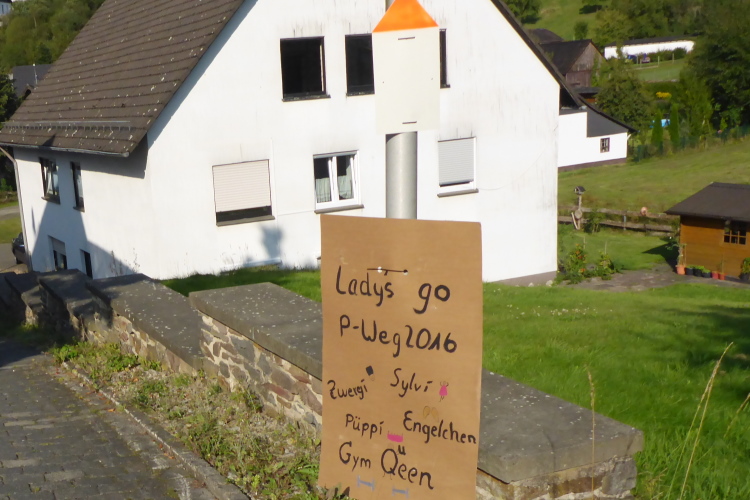 Ladys go
P-Weg 2016
Zwergi Sylvi
Püppi Engelchen
Gym Qüeen